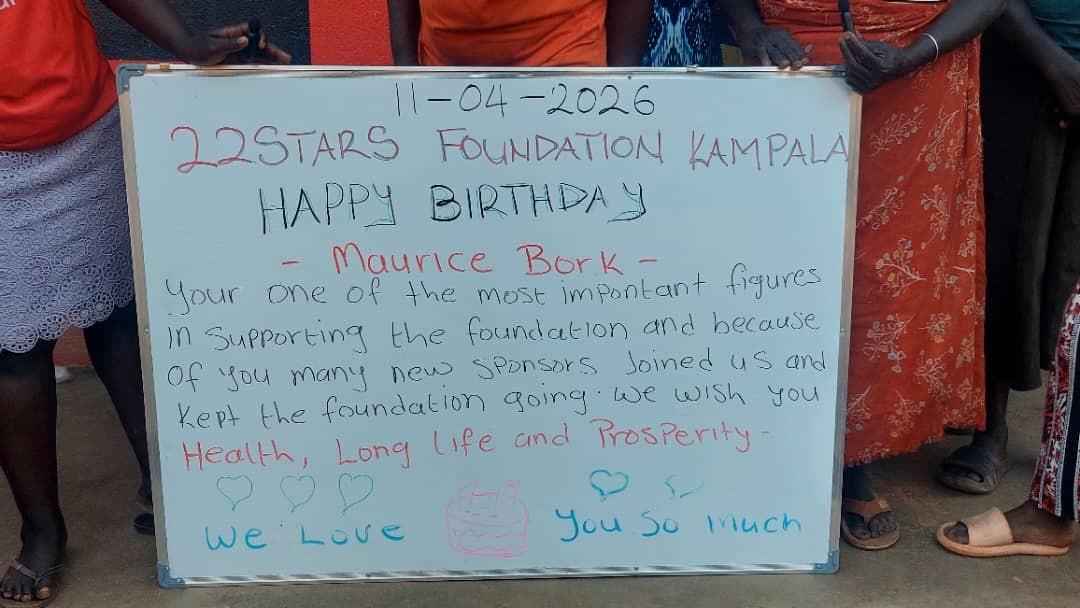 11-04-2026
22STARS FOUNDATION KAMPALA
HAPPY BIRTHDAY
- Maurice Bork -
Your one of the most impontant figures
In supporting the foundation and because
Of you many new sponsors Joined us and
Kept the foundation going. We wish you
Health, Long life and Prosperity-
We Love You So much